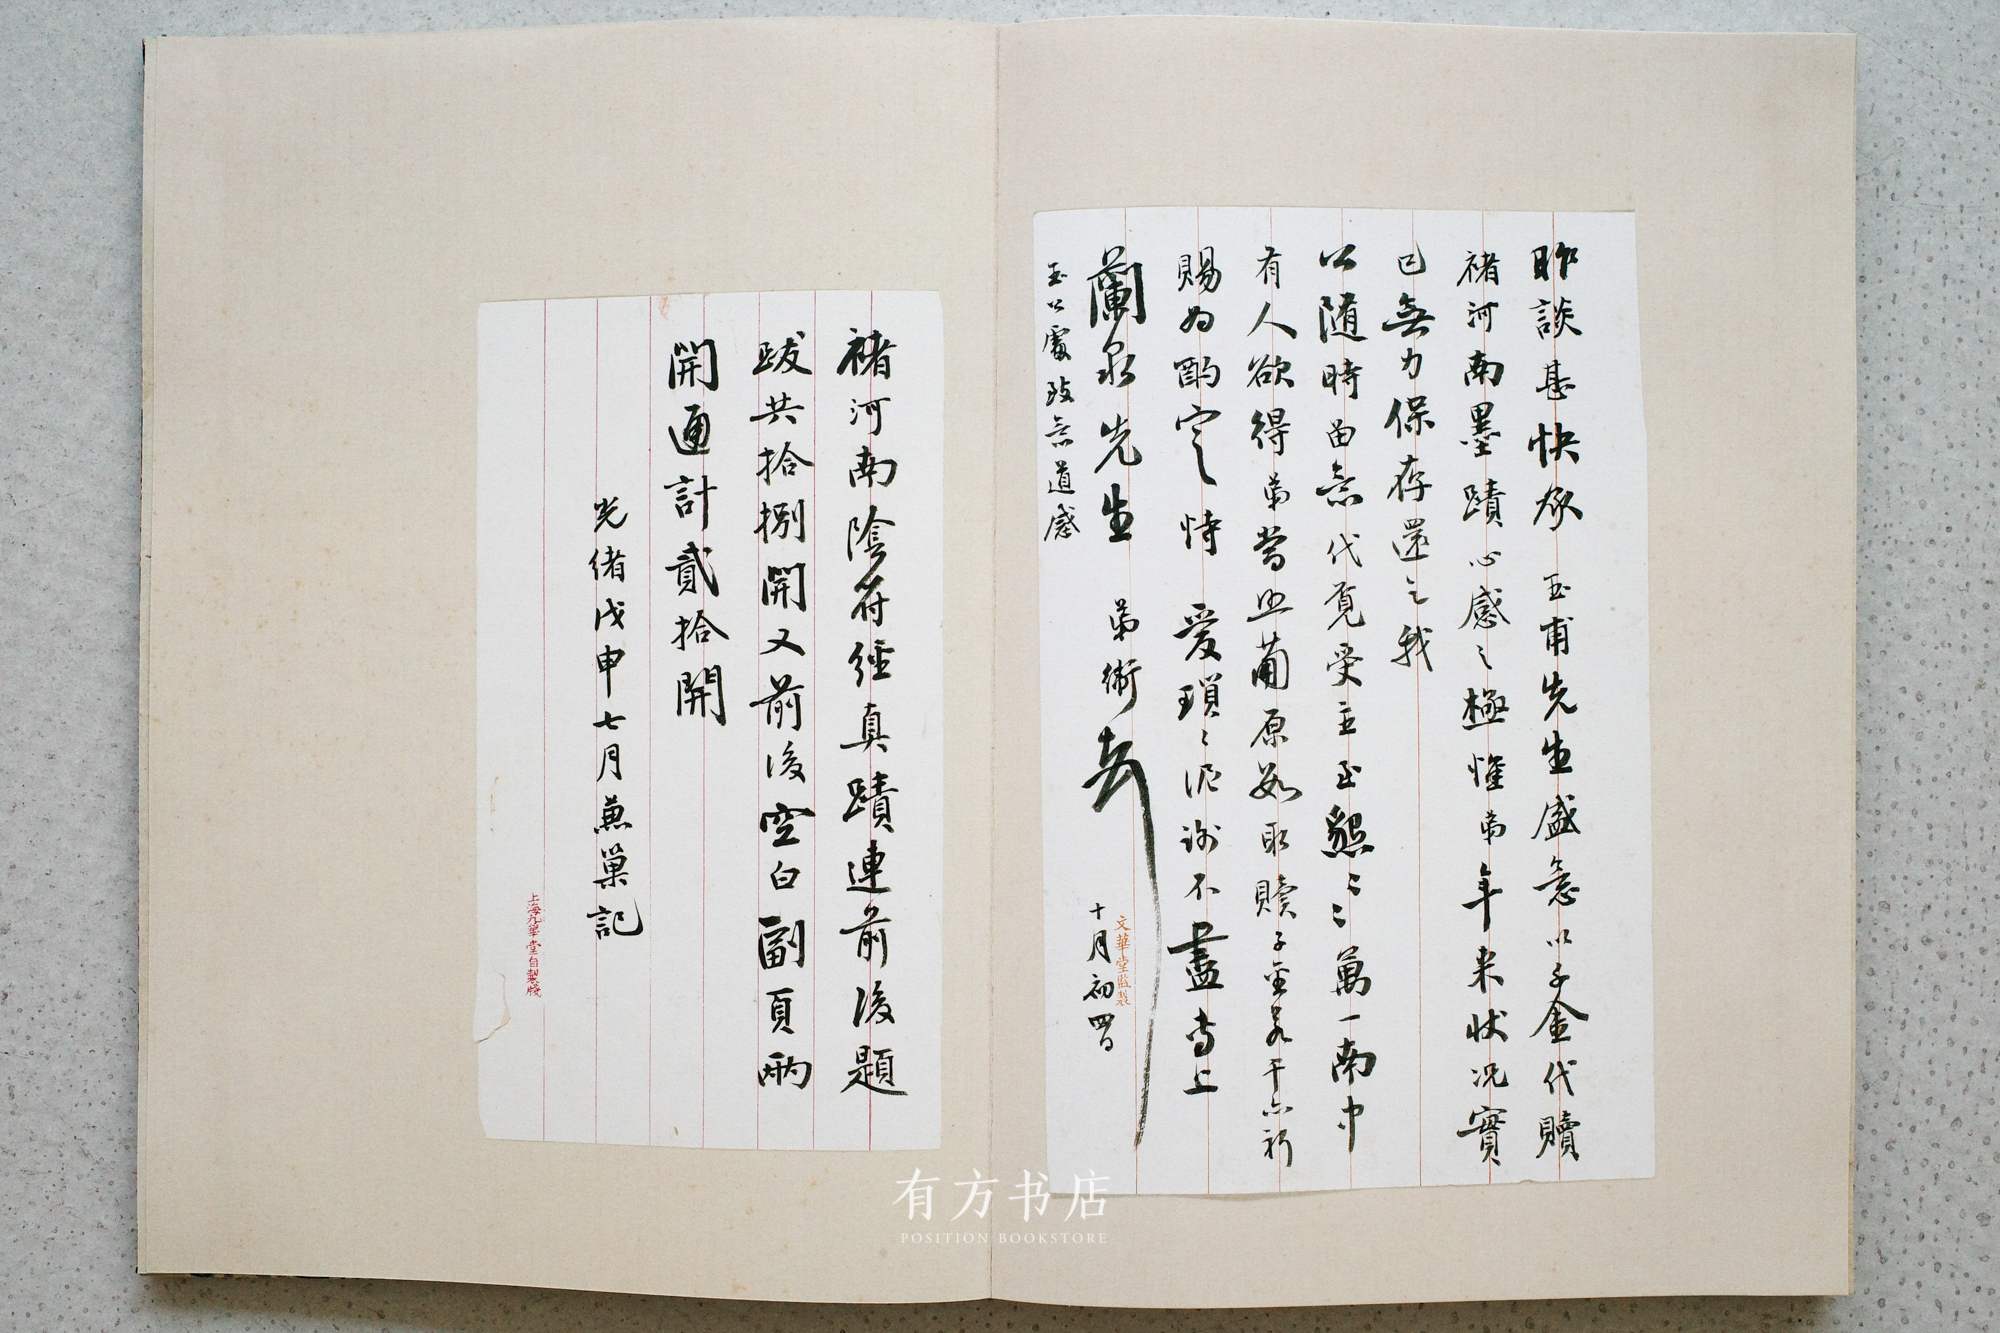 昨談甚快承玉甫先生盛意以子金代贖
褚河南墨蹟心感之極惟弟年来状况實
已無力保存還之我
公随時留意代覓受主至懇〻〻萬一南中
有人欲得弟當照前原數取贖子金若干亦祈
賜為酌定恃愛瑣〻泥謝不盡專上
蘭泉先生 弟衛 十月初四日
玉公處致意道感
文華堂監製
褚河南陰符經真蹟連前後題
跋共拾捌開又前後空白副頁兩
開通計貳拾開
光緒戊申七月燕巢記
上海九華堂自製牋
有方书店
POSITION BOOKSTORE